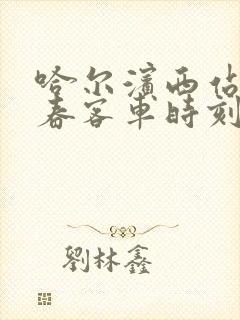 哈尔滨西站
春客车时刻
劉林鑫